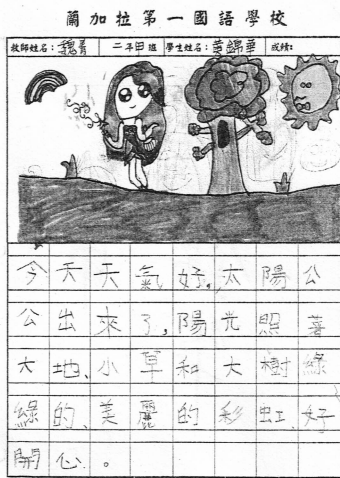 蘭加拉第一國語學校
教師姓名：魏青 二年甲班 學生姓名：黃錦華 成績：
今天天氣好，太陽公
公出來了，陽光照著
大地、小草和大樹綠
綠的、美麗的彩虹、好
開心。